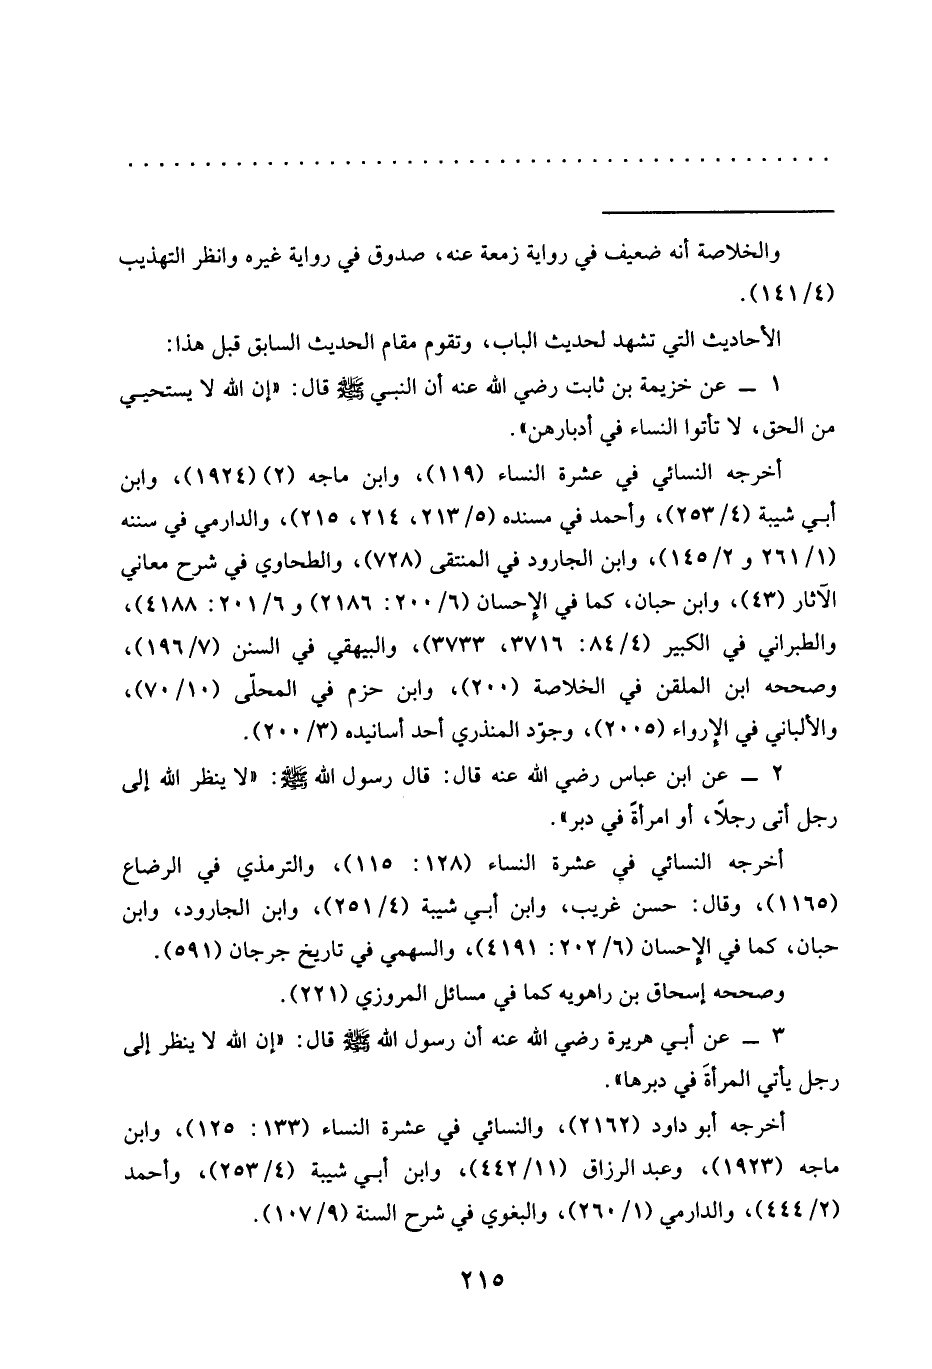 . . . . . . . . . . . . . . . . . . . . . . . . . . . . . . . . . . . . . . . . . . . . . .
والخلاصة أنه ضعيف في رواية زمعة عنه، صدوق في رواية غيره وانظر التهذيب
(٤/١٤١).
الأحاديث التي تشهد لحديث الباب، وتقوم مقام الحديث السابق قبل هذا:
١ ــ عن خزيمة بن ثابت رضي الله عنه أن النبـي ﷺ قال: «إن الله لا يستحيـي
من الحق، لا تأتوا النساء في أدبارهن».
أخرجه النسائي في عشرة النساء (١١٩)، وابن ماجه (٢) (١٩٢٤)، وابن
أبـي شيبة (٤/٢٥٣)، وأحمد في مسنده (٥/٢١٣، ٢١٤، ٢١٥)، والدارمي في سننه
(١/٢٦١ و ٢/١٤٥)، وابن الجارود في المنتقى (٧٢٨)، والطحاوي في شرح معاني
الآثار (٤٣)، وابن حبان، كما في الإحسان (٦/٢٠٠: ٢١٨٦) و ٦/٢٠١: ٤١٨٨)،
والطبراني في الكبير (٤/٨٤: ٣٧١٦، ٣٧٣٣)، والبيهقي في السنن (٧/١٩٦)،
وصححه ابن الملقن في الخلاصة (٢٠٠)، وابن حزم في المحلّى (١٠/٧٠)،
والألباني في الإرواء (٢٠٠٥)، وجوّد المنذري أحد أسانيده (٣/٢٠٠).
٢ ــ عن ابن عباس رضي الله عنه قال: قال رسول الله ﷺ: «لا ينظر الله إلى
رجل أتى رجلاً، أو امرأةً في دبر».
أخرجه النسائي في عشرة النساء (١٢٨: ١١٥)، والترمذي في الرضاع
(١١٦٥)، وقال: حسن غريب، وابن أبـي شيبة (٤/٢٥١)، وابن الجارود، وابن
حبان، كما في الإحسان (٦/٢٠٢: ٤١٩١)، والسهمي في تاريخ جرجان (٥٩١).
وصححه إسحاق بن راهويه كما في مسائل المروزي (٢٢١).
٣ ــ عن أبـي هريرة رضي الله عنه أن رسول الله ﷺ قال: «إن الله لا ينظر إلى
رجل يأتي المرأةَ في دبرها».
أخرجه أبو داود (٢١٦٢)، والنسائي في عشرة النساء (١٣٣: ١٢٥)، وابن
ماجه (١٩٢٣)، وعبد الرزاق (١١/٤٤٢)، وابن أبـي شيبة (٤/٢٥٣)، وأحمد
(٢/٤٤٤)، والدارمي (١/٢٦٠)، والبغوي في شرح السنة (٩/١٠٧).
٢١٥